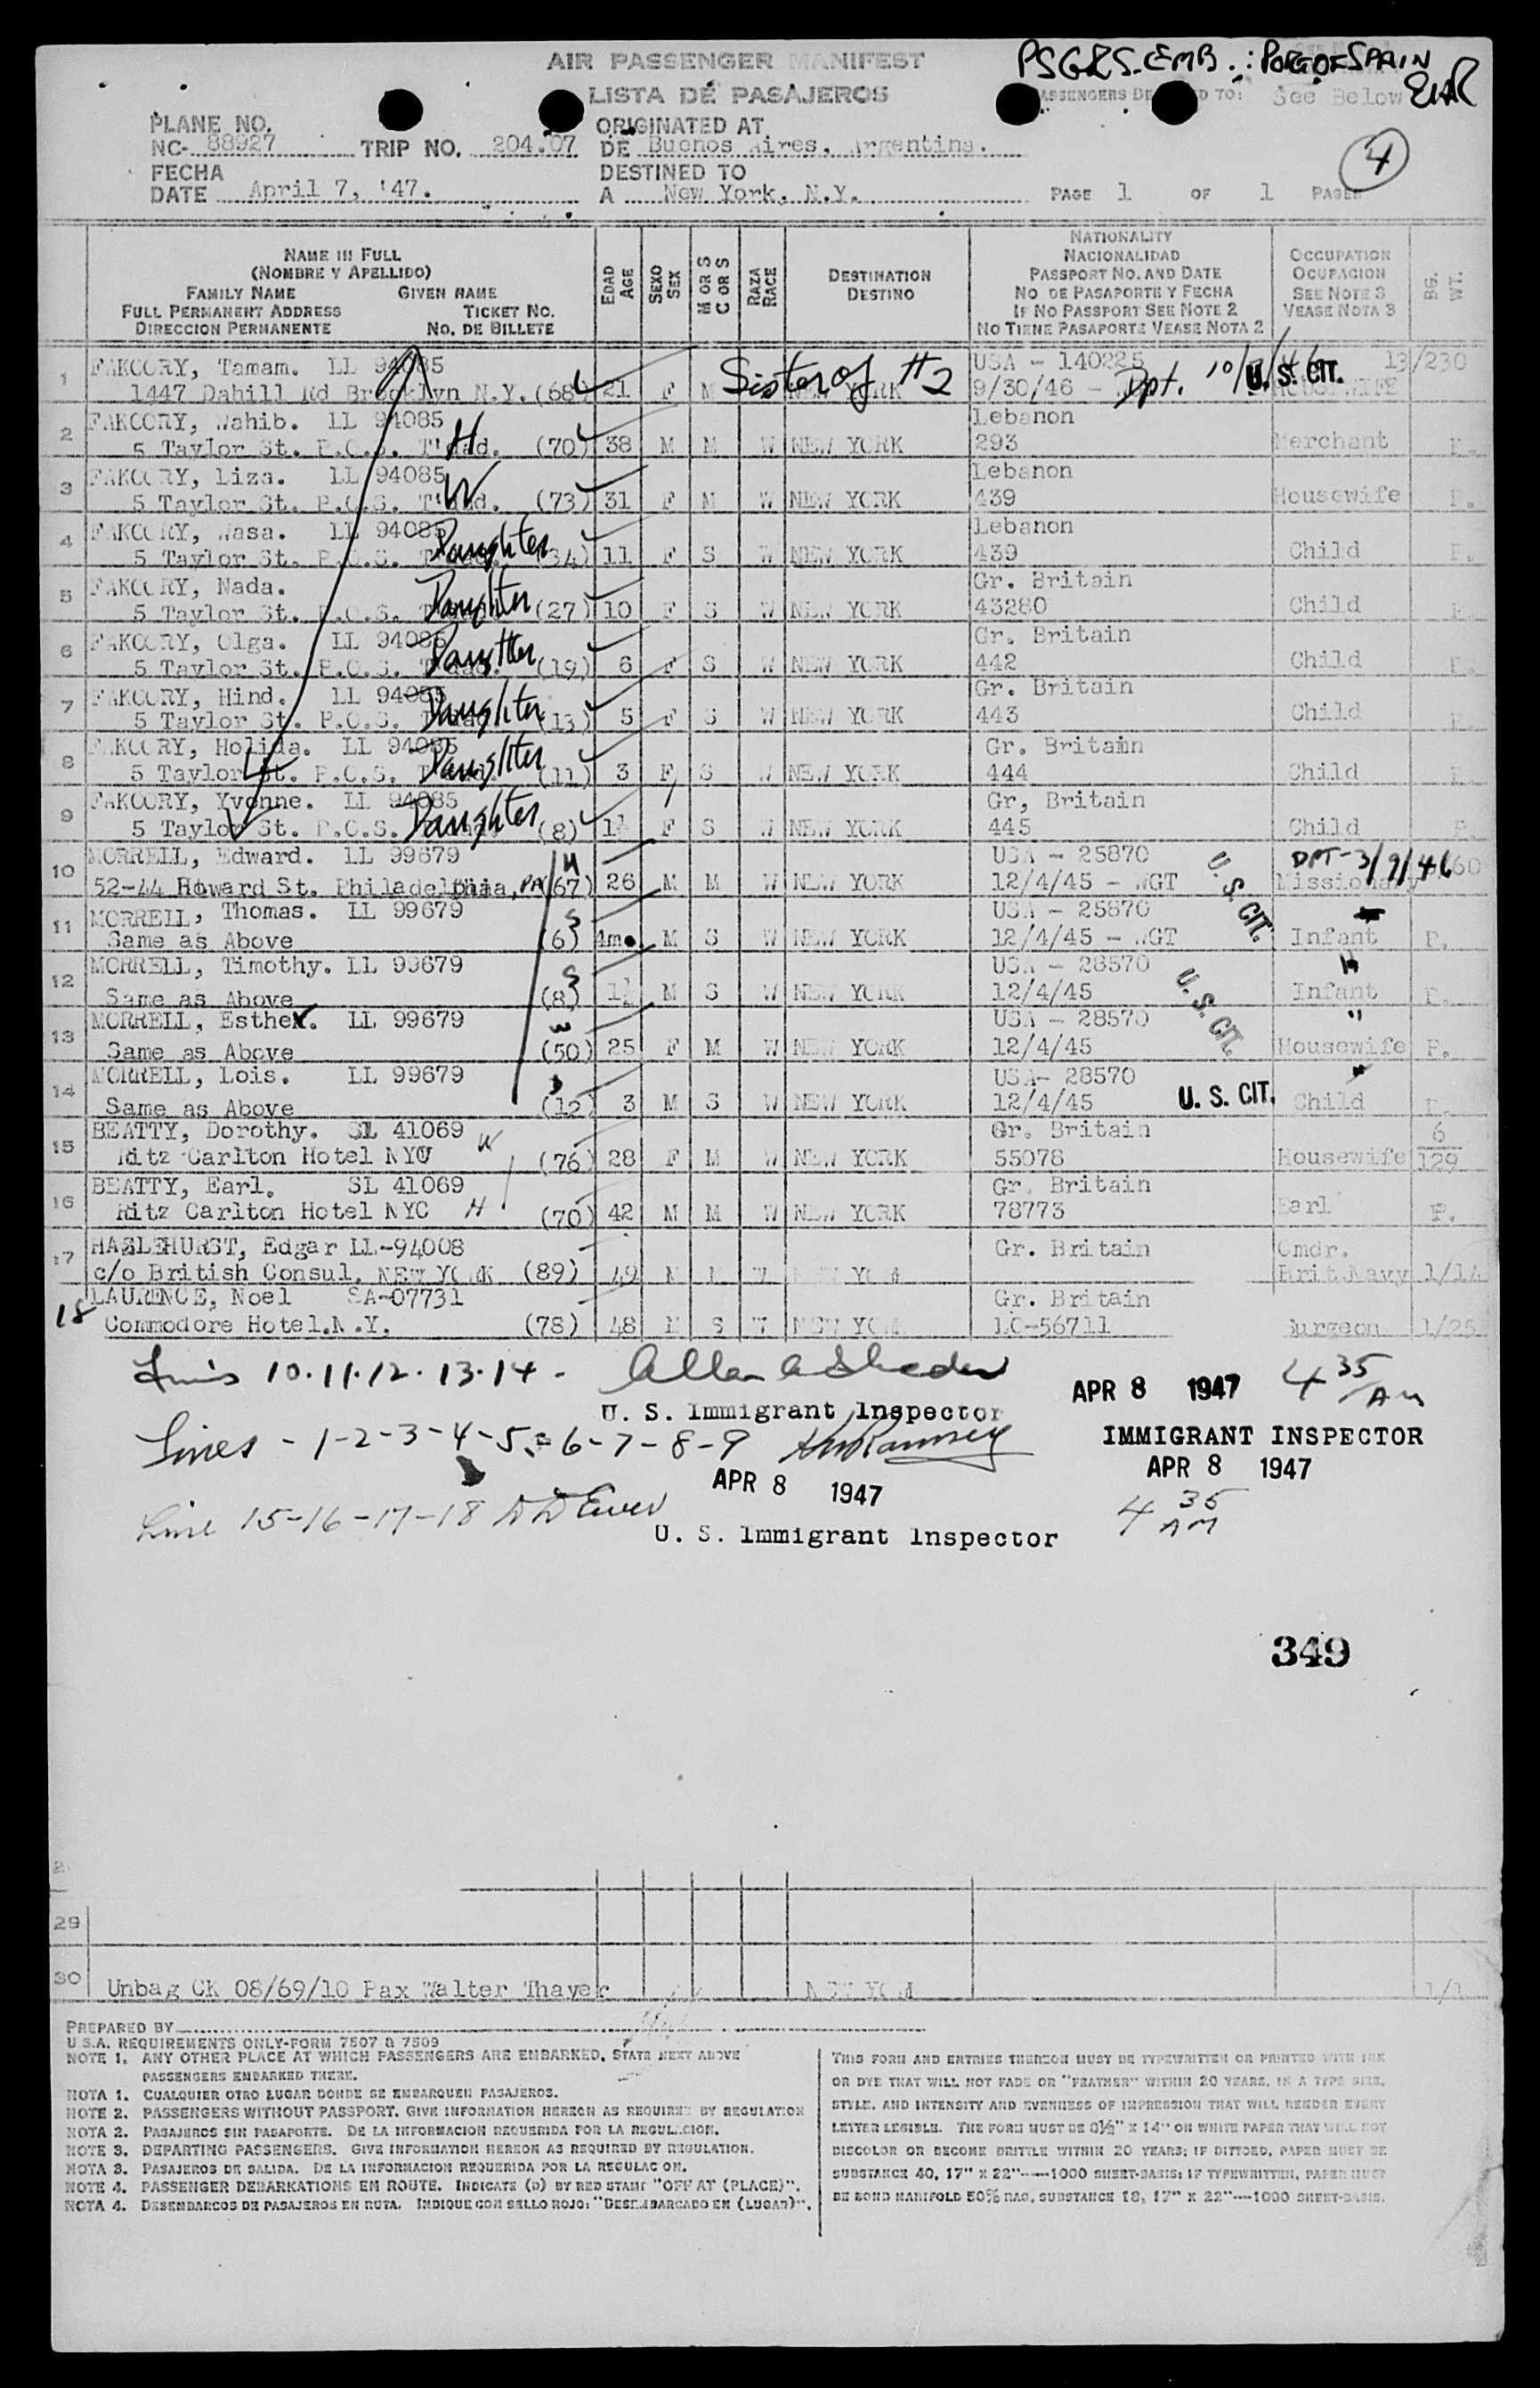 AIR PASSENGER MANIFEST
PSGRS. EMB.: PORT OF SPAIN
LISTA DE PASAJEROS
See Below
PLANE NO.
NC- 88927 TRIP NO. 204.07
ORIGINATED AT
DE Buenos Aires, Argentina.
4
FECHA
DATE April 7, '47.
DESTINED TO
A New York, N.Y.
PAGE 1 OF 1 PAGES
NAME IN FULL
(NOMBRE Y APELLIDO)
FAMILY NAME GIVEN NAME
FULL PERMANENT ADDRESS TICKET NO.
DIRECCION PERMANENTE NO. DE BILLETE
EDAD AGE
SEXO SEX
M OR S
C OR S
RAZA RACE
DESTINATION
DESTINO
NATIONALITY
NACIONALIDAD
PASSPORT NO. AND DATE
NO DE PASAPORTE Y FECHA
IF NO PASSPORT SEE NOTE 2
NO TIENE PASAPORTE VEASE NOTA 2
OCCUPATION
OCUPACION
SEE NOTE 3
VEASE NOTA 3
BG. WT.
1 FAKOORY, Tamam. LL 94085 USA - 140225 13/230
1447 Dahill Rd Brooklyn N.Y. (68) 21 F M Sister of #2 NEW YORK 9/30/46 - Dpt. U.S. CIT. HOUSEWIFE
2 FAKOORY, Wahib. LL 94085 Lebanon
5 Taylor St. P.O.S. T'dad. H (70) 38 M M W NEW YORK 293 Merchant P.
3 FAKOORY, Liza. LL 94085 Lebanon
5 Taylor St. P.O.S. T'dad. W (73) 31 F M W NEW YORK 439 Housewife P.
4 FAKOORY, Wasa. LL 94085 Lebanon
5 Taylor St. P.O.S. Daughter (34) 11 F S W NEW YORK 439 Child P.
5 FAKOORY, Nada. Gr. Britain
5 Taylor St. P.O.S. Daughter (27) 10 F S W NEW YORK 43280 Child P.
6 FAKOORY, Olga. LL 94085 Gr. Britain
5 Taylor St. P.O.S. Daughter (19) 6 F S W NEW YORK 442 Child P.
7 FAKOORY, Hind. LL 94085 Gr. Britain
5 Taylor St. P.O.S. Daughter (13) 5 F S W NEW YORK 443 Child P.
8 FAKOORY, Holida. LL 94085 Gr. Britain
5 Taylor St. P.O.S. Daughter (11) 3 F S W NEW YORK 444 Child P.
9 FAKOORY, Yvonne. LL 94085 Gr, Britain
5 Taylor St. P.O.S. Daughter (8) F S W NEW YORK 445 Child P.
10 MORRELL, Edward. LL 99679 H USA - 25870 U.S. CIT. DPT-3/9/46
52-44 Howard St. Philadelphia, PA (67) 26 M M W NEW YORK 12/4/45 - WGT Missionary
11 MORRELL, Thomas. LL 99679 S USA - 25870
Same as Above (6) 4mo. M S W NEW YORK 12/4/45 - WGT Infant P.
12 MORRELL, Timothy. LL 99679 S USA - 28570 U.S. CIT.
Same as Above (8) M S W NEW YORK 12/4/45 Infant P.
13 MORRELL, Esther. LL 99679 W USA - 28570 "
Same as Above (50) 25 F M W NEW YORK 12/4/45 Housewife P.
14 MORRELL, Lois. LL 99679 USA- 28570
Same as Above (12) 3 M S W NEW YORK 12/4/45 U. S. CIT. Child P.
15 BEATTY, Dorothy. SL 41069 W Gr. Britain 6
Ritz Carlton Hotel NYC (76) 28 F M W NEW YORK 55078 Housewife 129
16 BEATTY, Earl. SL 41069 Gr. Britain
Ritz Carlton Hotel NYC H (70) 42 M M W NEW YORK 78773 Earl P.
17 HASLEHURST, Edgar LL-94008 Gr. Britain Cmdr.
c/o British Consul. NEW YORK (89) 49 M M W NEW YORK Brit.Navy 1/14
18 LAURENCE, Noel SA-07731 Gr. Britain
Commodore Hotel.N.Y. (78) 48 M S W NEW YORK LC-56711 Surgeon 1/25
10.11.12.13.14 -
U. S. Immigrant Inspector
APR 8 1947 4 35 AM
Lines - 1-2-3-4-5-6-7-8-9
IMMIGRANT INSPECTOR
APR 8 1947
APR 8 1947
Line 15-16-17-18
U. S. Immigrant Inspector
4 35 AM
349
29
30 Unbag CK 08/69/10 Pax Walter Thayer NEW YORK 1/1
PREPARED BY
U.S.A. REQUIREMENTS ONLY-FORM 7507 & 7509
NOTE 1. ANY OTHER PLACE AT WHICH PASSENGERS ARE EMBARKED, STATE NEXT ABOVE
PASSENGERS EMBARKED THERE.
NOTA 1. CUALQUIER OTRO LUGAR DONDE SE EMBARQUEN PASAJEROS.
NOTE 2. PASSENGERS WITHOUT PASSPORT. GIVE INFORMATION HEREON AS REQUIRED BY REGULATION
NOTA 2. PASAJEROS SIN PASAPORTE. DE LA INFORMACION REQUERIDA POR LA REGULACION.
NOTE 3. DEPARTING PASSENGERS. GIVE INFORMATION HEREON AS REQUIRED BY REGULATION.
NOTA 3. PASAJEROS DE SALIDA. DE LA INFORMACION REQUERIDA POR LA REGULACION.
NOTE 4. PASSENGER DEBARKATIONS EN ROUTE. INDICATE (D) BY RED STAMP "OFF AT (PLACE)".
NOTA 4. DESEMBARCOS DE PASAJEROS EN RUTA. INDIQUE CON SELLO ROJO: "DESEMBARCADO EN (LUGAR)".
THIS FORM AND ENTRIES THEREON MUST BE TYPEWRITTEN OR PRINTED WITH INK
OR DYE THAT WILL NOT FADE OR "FEATHER" WITHIN 20 YEARS, IN A TYPE SIZE,
STYLE, AND INTENSITY AND EVENNESS OF IMPRESSION THAT WILL RENDER EVERY
LETTER LEGIBLE. THE FORM MUST BE 8½" X 14" ON WHITE PAPER THAT WILL NOT
DISCOLOR OR BECOME BRITTLE WITHIN 20 YEARS; IF DITTOED, PAPER MUST BE
SUBSTANCE 40, 17" X 22"-----1000 SHEET-BASIS; IF TYPEWRITTEN, PAPER MUST
BE BOND MANIFOLD 50% RAG, SUBSTANCE 18, 17" X 22"----1000 SHEET-BASIS.